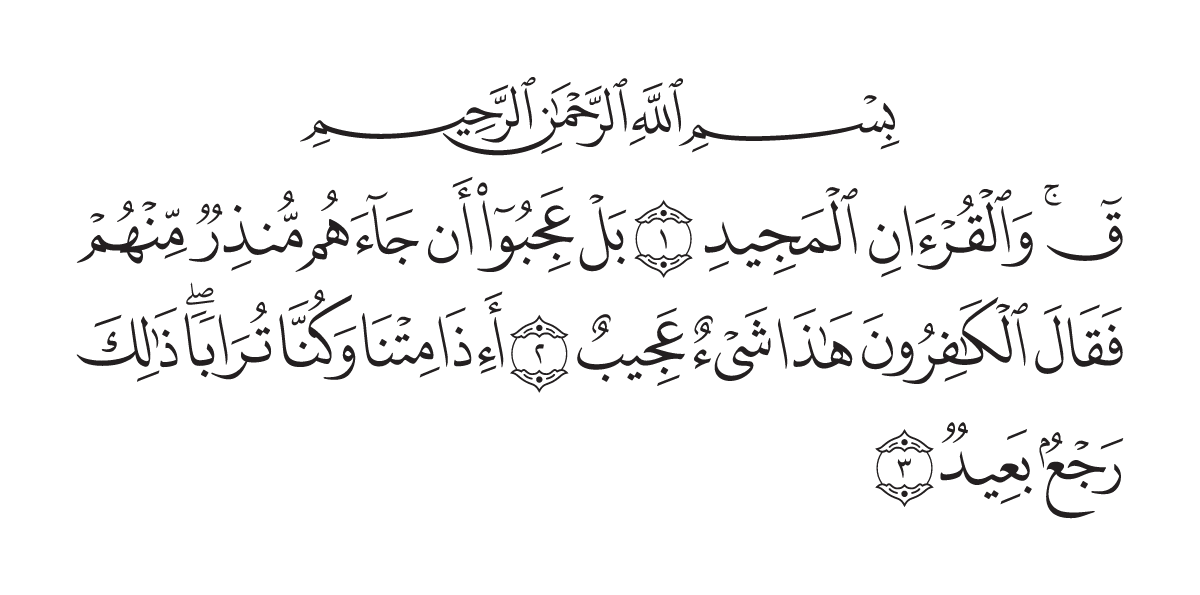 بِسْمِ ٱللَّهِ ٱلرَّحْمَٰنِ ٱلرَّحِيمِ
قٓ ۚ وَٱلْقُرْءَانِ ٱلْمَجِيدِ ١ بَلْ عَجِبُوٓا۟ أَن جَآءَهُم مُّنذِرٌ مِّنْهُمْ
فَقَالَ ٱلْكَٰفِرُونَ هَٰذَا شَىْءٌ عَجِيبٌ ٢ أَءِذَا مِتْنَا وَكُنَّا تُرَابًا ۖ ذَٰلِكَ
رَجْعٌۢ بَعِيدٌ ٣